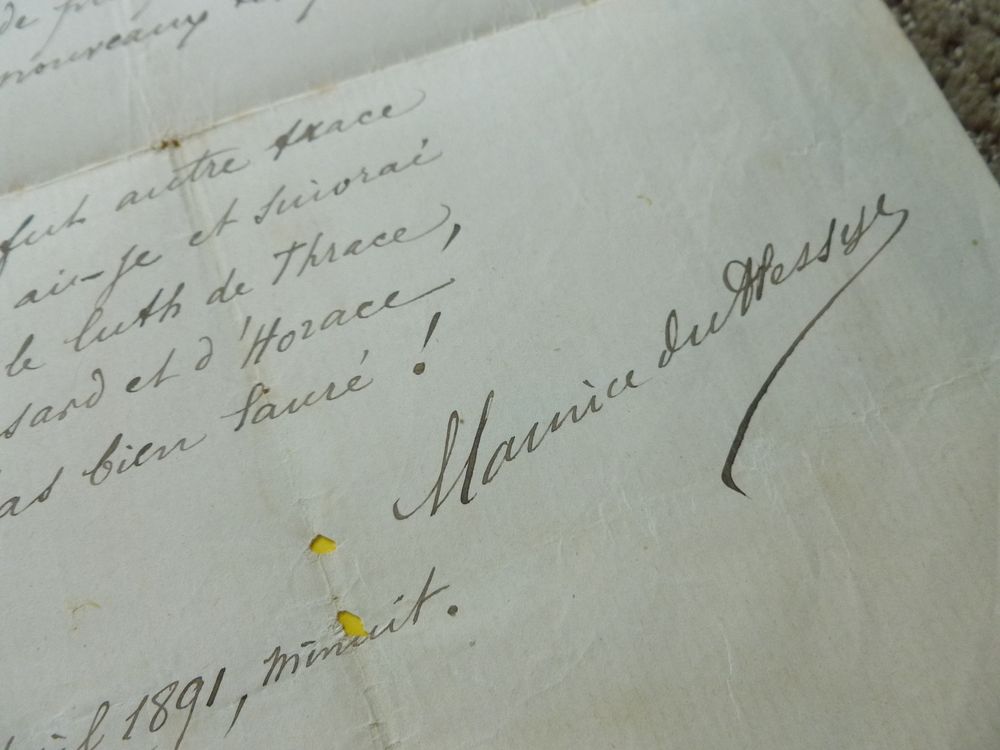 de
nouveaux
fut autre trace
ai-je et suivrai
le luth de Thrace,
sard et d'Horace
as bien lauré !
Maurice du Plessys
1891, minuit.